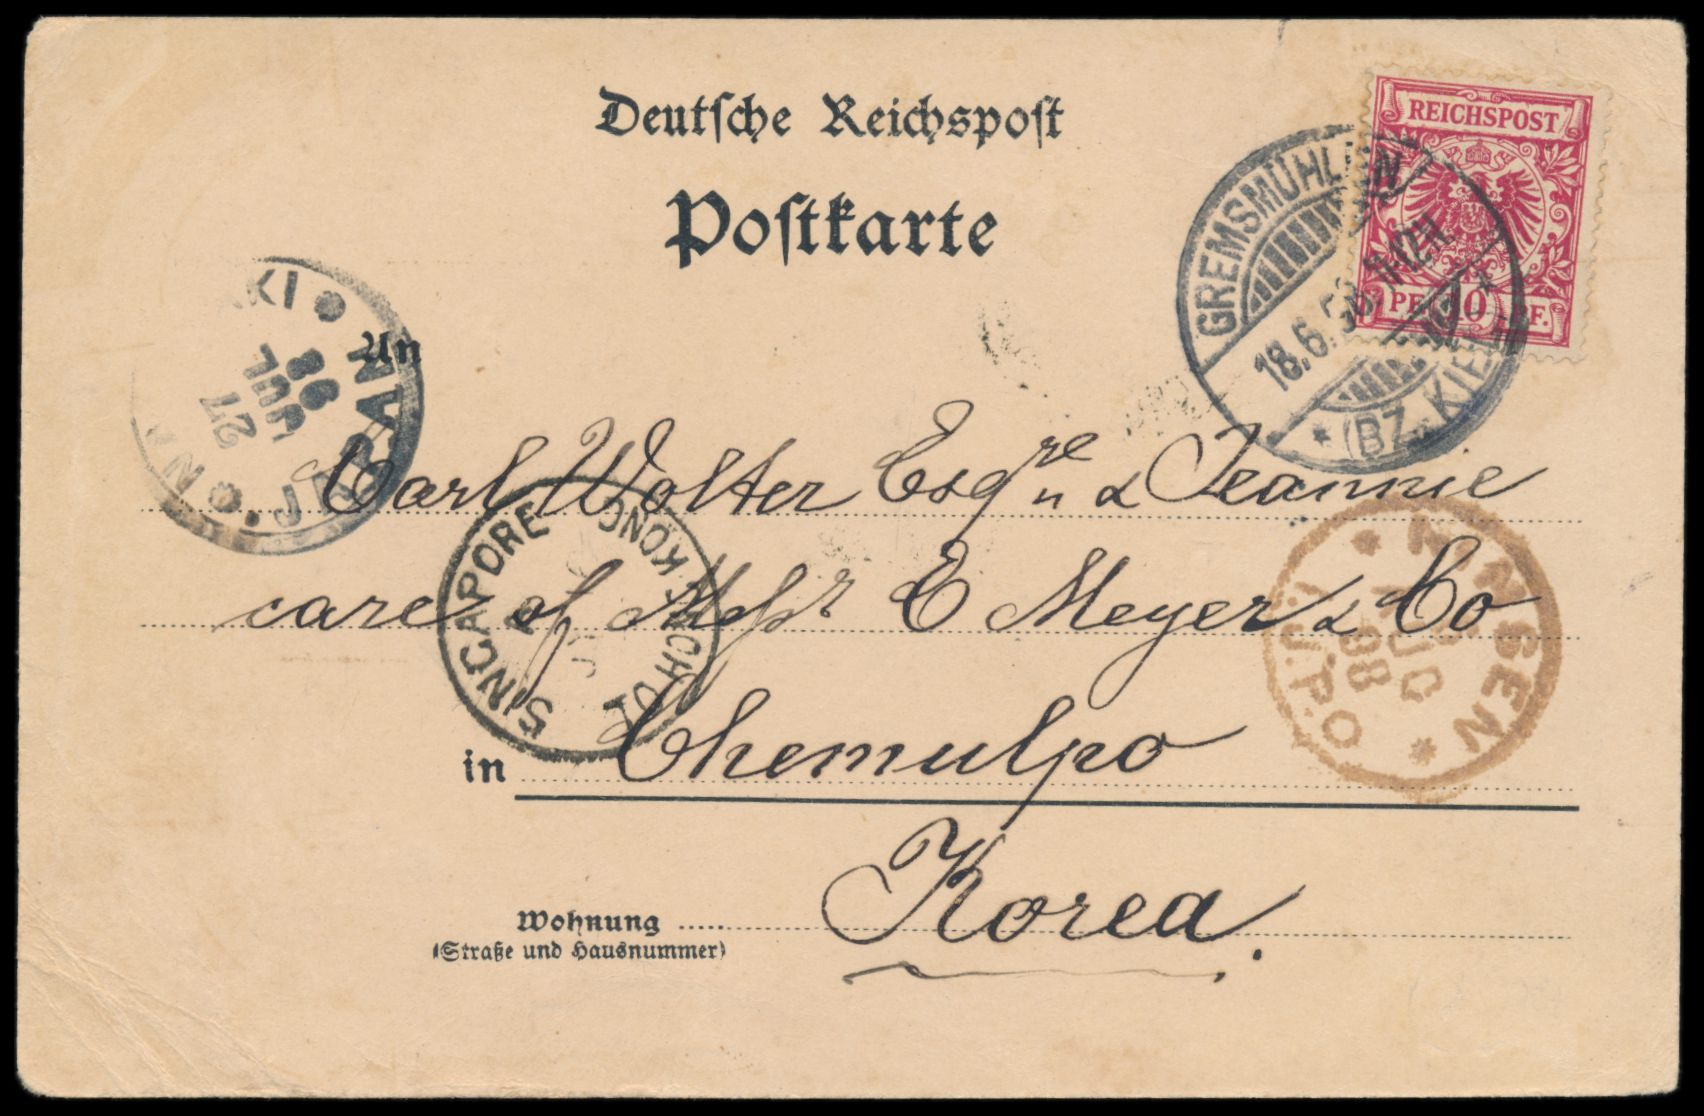 Deutsche Reichspost
Postkarte
REICHSPOST
PF. 10 PF.
GREMSMÜHLEN
18.6.98. 11-12N.
* (BZ. KIEL) *
KI
27
JUL
98
JAPAN
An
Carl Wolter Esqre & Jeannie
SINGAPORE
HONG KONG
care of Messr E Meyer & Co
INSEN
AUG
98
I.J.P.O
in Chemulpo
Korea.
Wohnung
(Straße und Hausnummer)